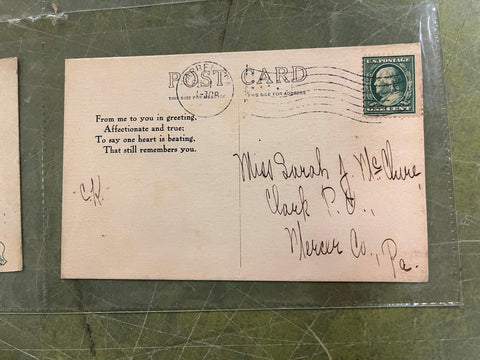 POST CARD
THIS SIDE FOR ADDRESS
U.S. POSTAGE
ONE CENT
From me to you in greeting,
Affectionate and true;
To say one heart is beating,
That still remembers you.
C.K.
Miss Sarah J. McClure,
Clark P. O.,
Mercer Co., Pa.